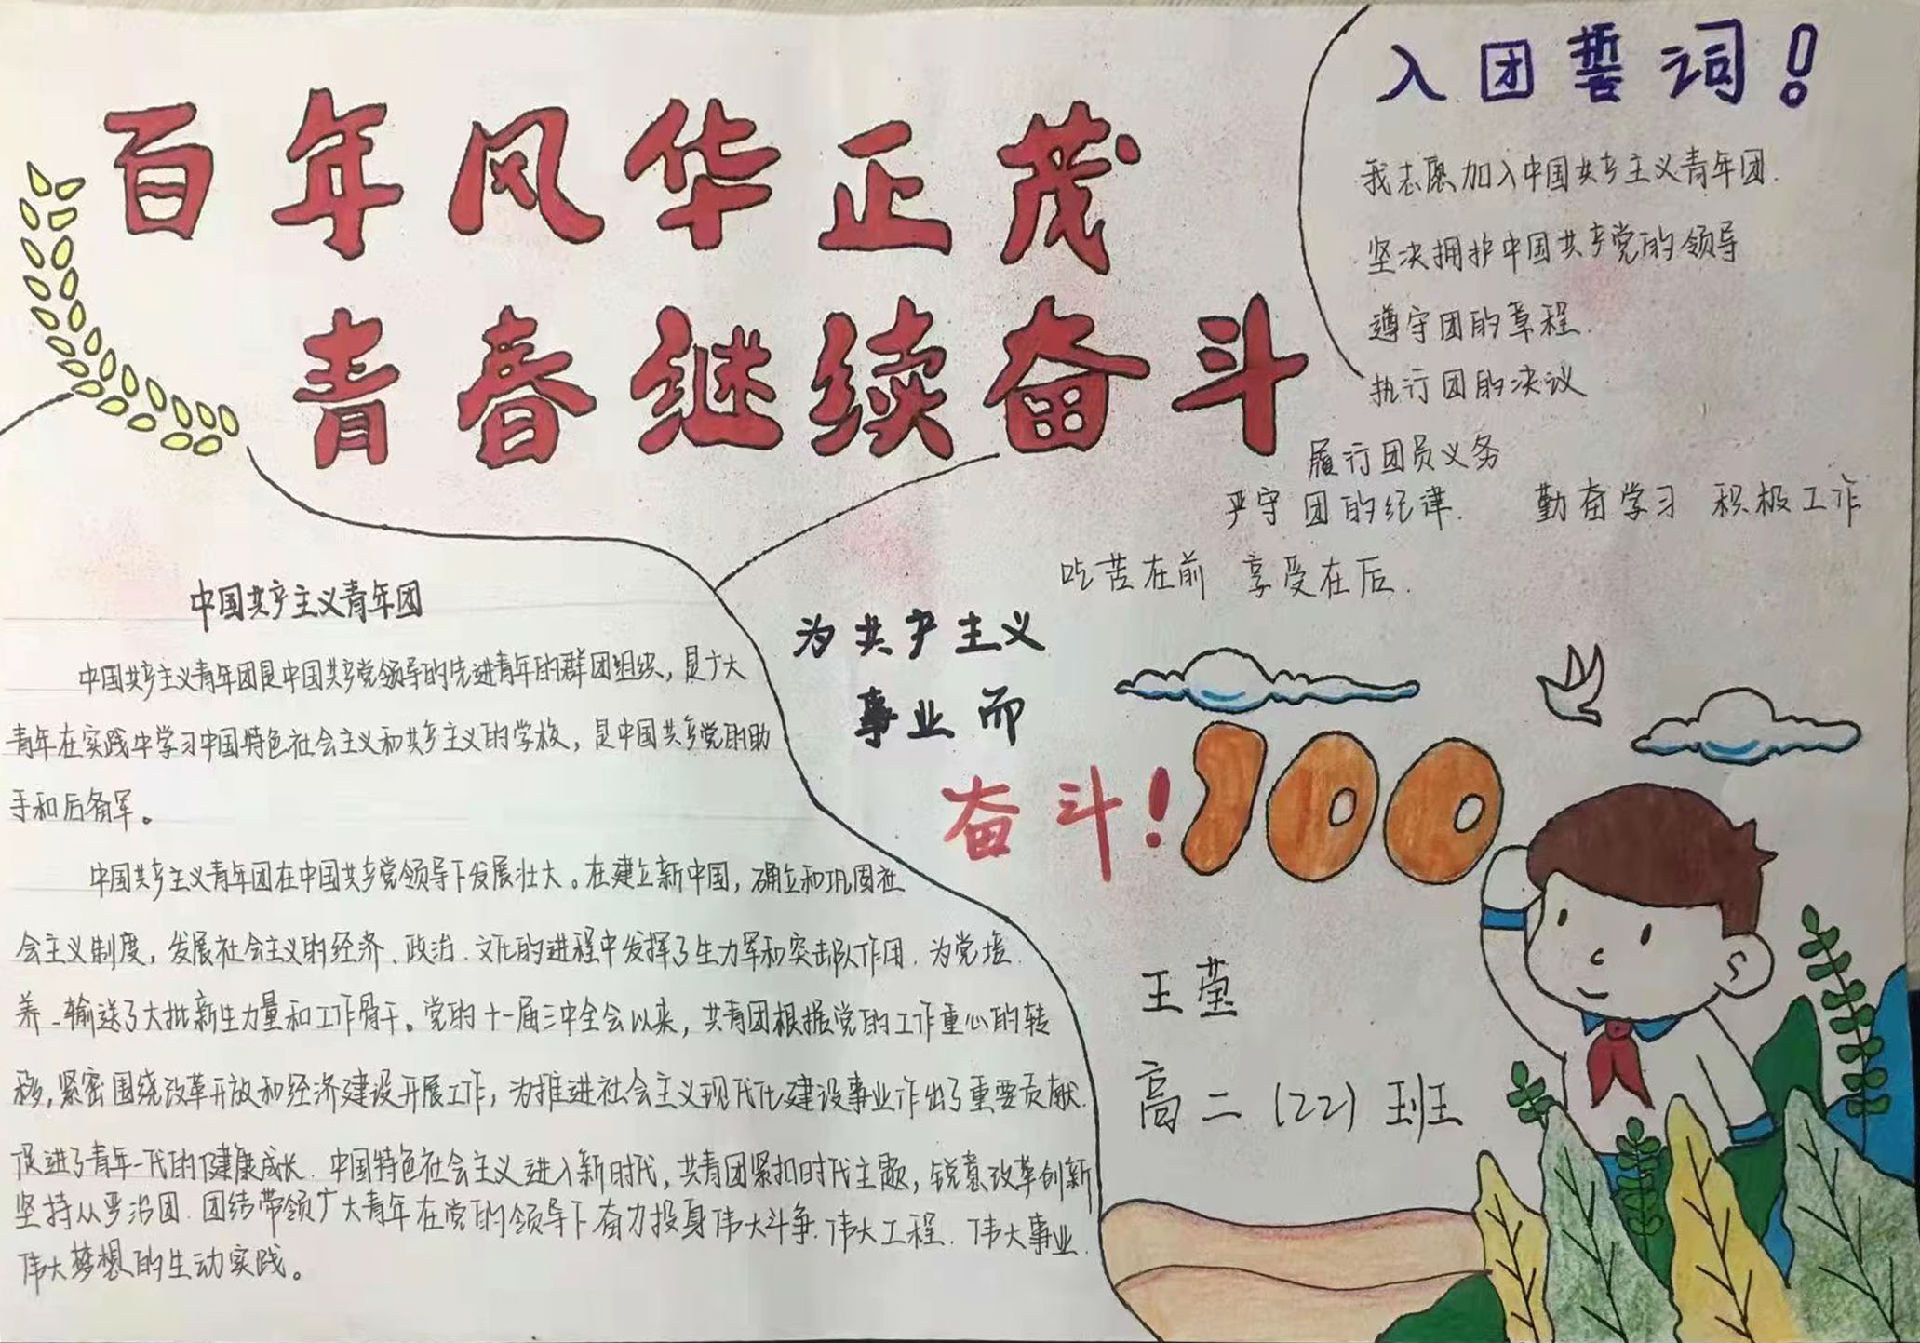 百年风华正茂
青春继续奋斗
入团誓词！
我志愿加入中国共产主义青年团.
坚决拥护中国共产党的领导
遵守团的章程.
执行团的决议
履行团员义务
严守团的纪律. 勤奋学习 积极工作
吃苦在前 享受在后.
为共产主义
事业而
奋斗！100
王莹
高二（22）班
中国共产主义青年团
中国共产主义青年团是中国共产党领导的先进青年的群团组织，是广大
青年在实践中学习中国特色社会主义和共产主义的学校，是中国共产党的助
手和后备军。
中国共产主义青年团在中国共产党领导下发展壮大。在建立新中国，确立和巩固社
会主义制度，发展社会主义的经济、政治、文化的进程中发挥了生力军和突击队作用、为党培
养、输送了大批新生力量和工作骨干。党的十一届三中全会以来，共青团根据党的工作重心的转
移，紧密围绕改革开放和经济建设开展工作，为推进社会主义现代化建设事业作出了重要贡献.
促进了青年一代的健康成长. 中国特色社会主义进入新时代，共青团紧扣时代主题，锐意改革创新
坚持从严治团、团结带领广大青年在党的领导下奋力投身伟大斗争、伟大工程、伟大事业、
伟大梦想的生动实践。